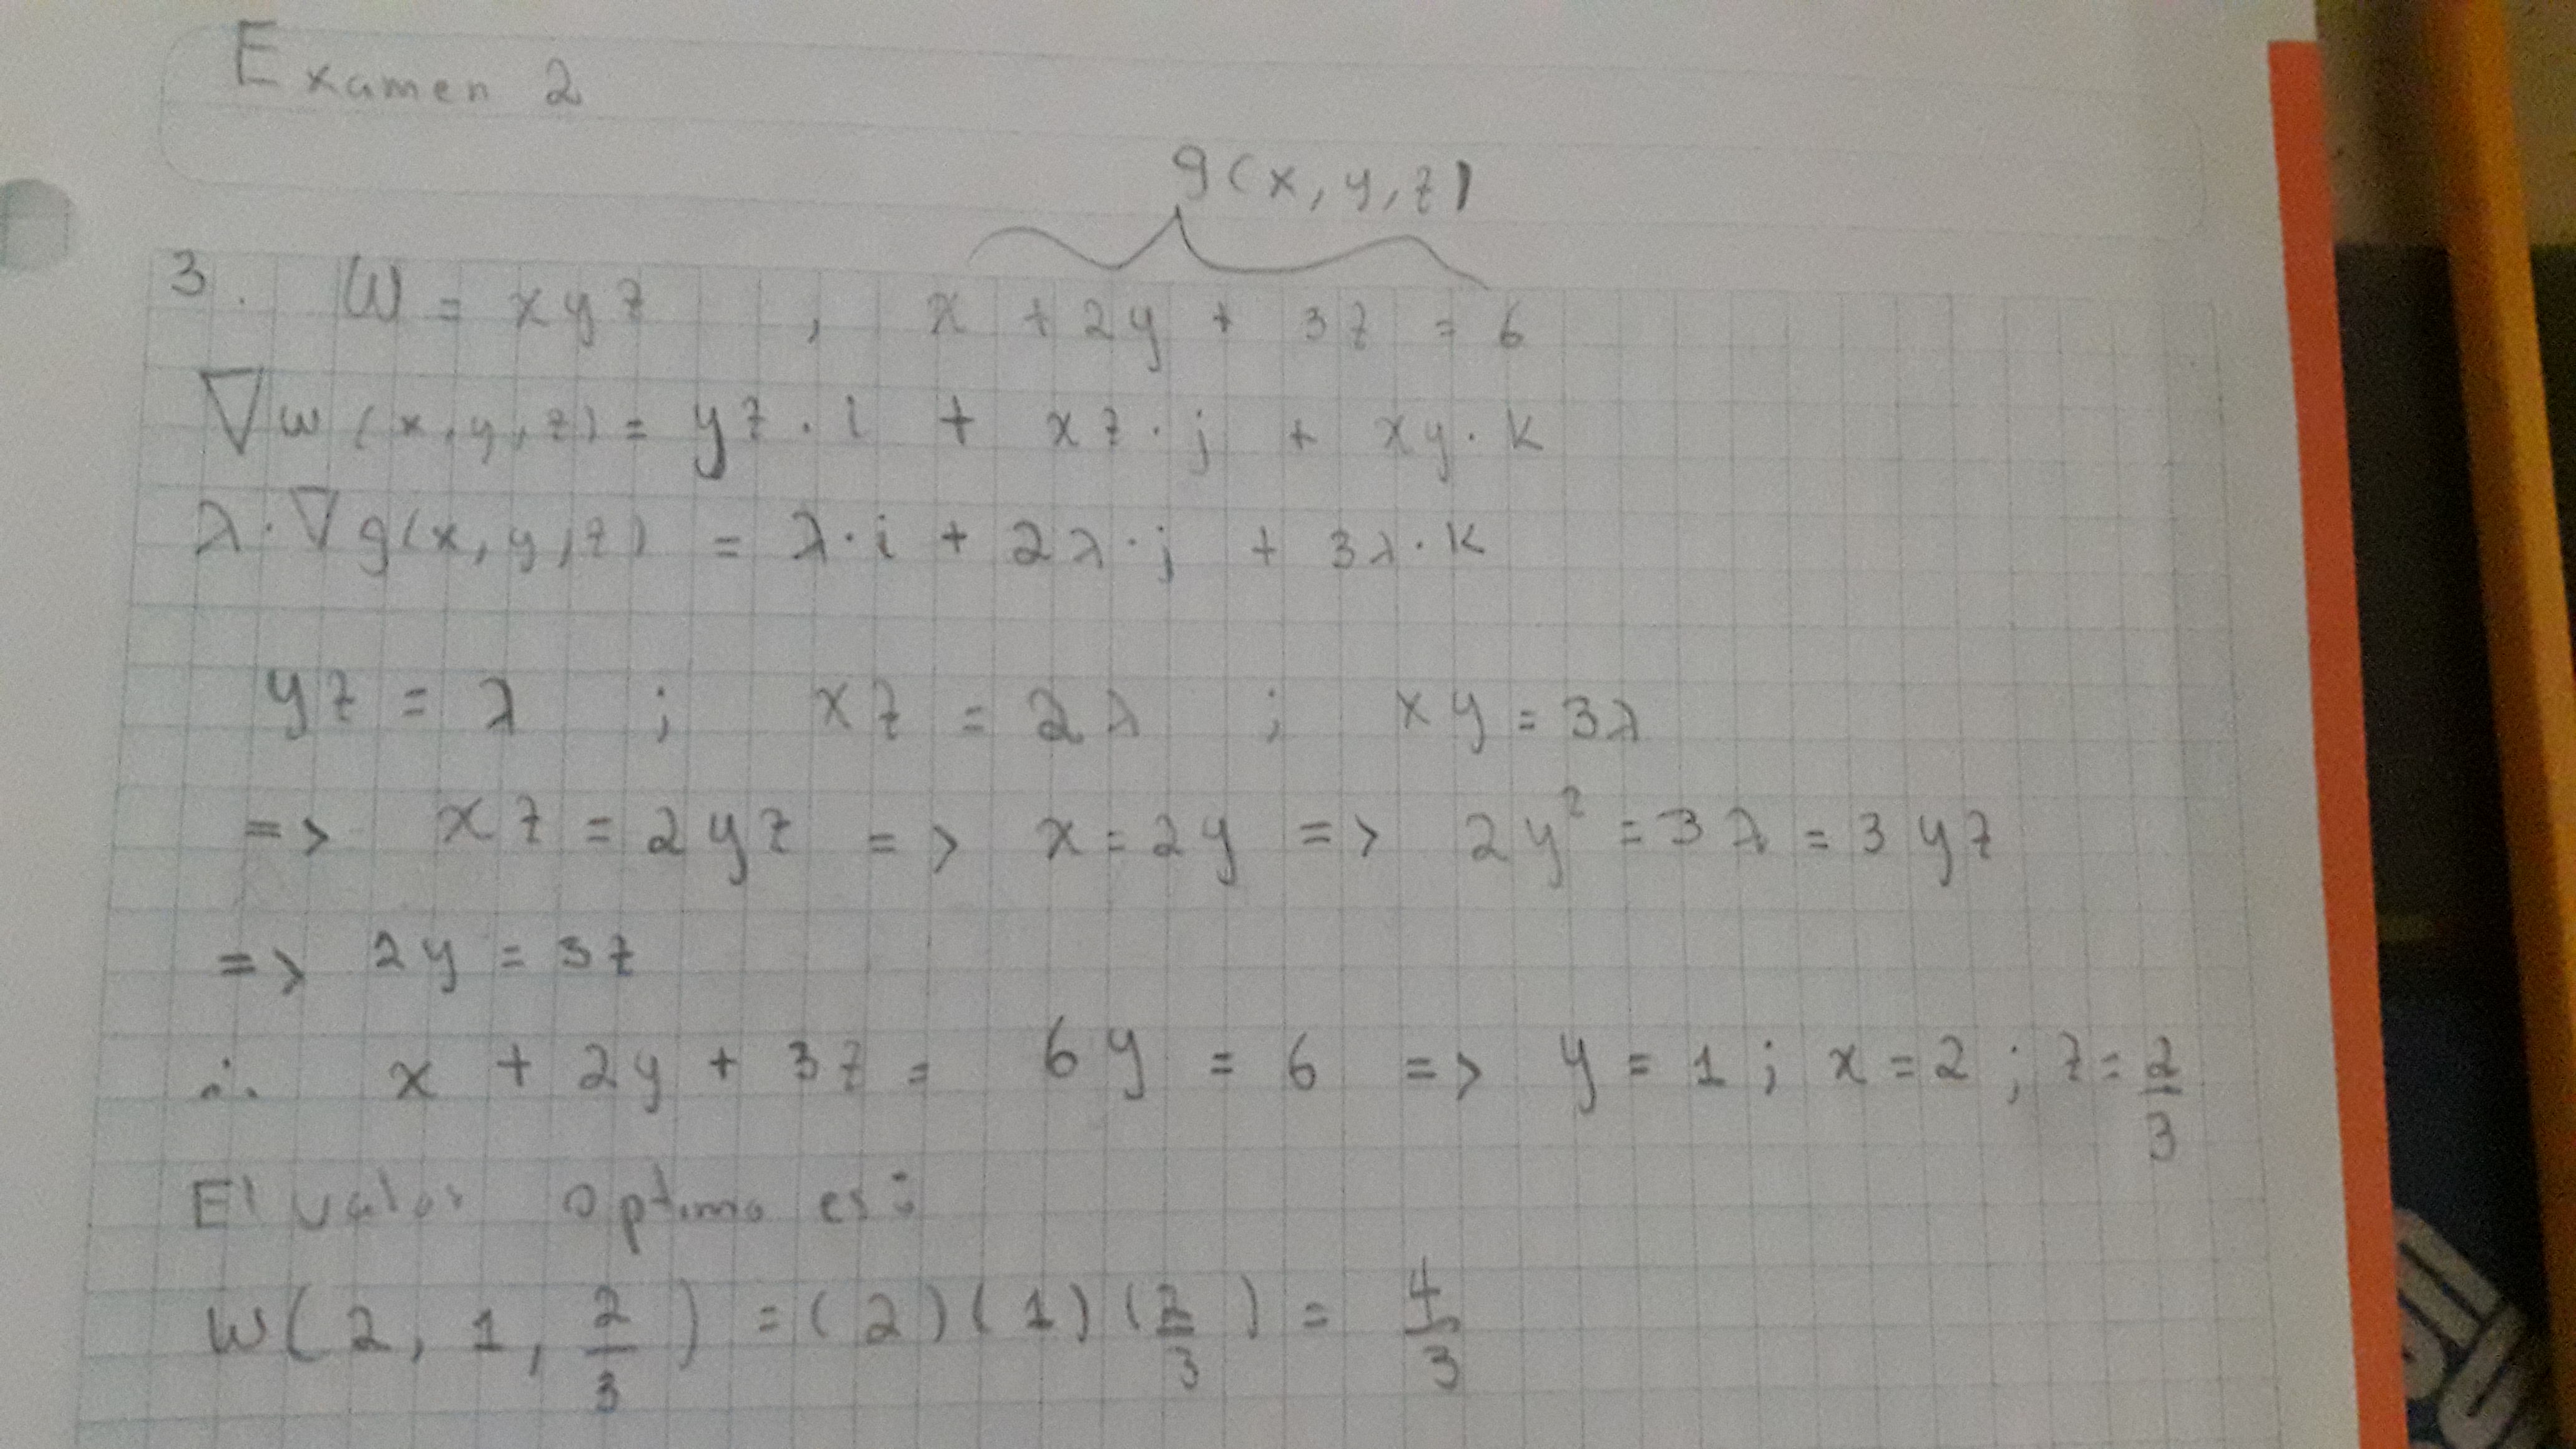 Examen 2
g(x,y,z)
3. W = xyz , x + 2y + 3z = 6
∇w(x,y,z) = yz·i + xz·j + xy·k
λ·∇g(x,y,z) = λ·i + 2λ·j + 3λ·k
yz = λ ; xz = 2λ ; xy = 3λ
=> xz = 2yz => x = 2y => 2y² = 3λ = 3yz
=> 2y = 3z
∴ x + 2y + 3z = 6y = 6 => y = 1 ; x = 2 ; z = 2/3
El valor optimo es:
W(2, 1, 2/3) = (2)(1)(2/3) = 4/3